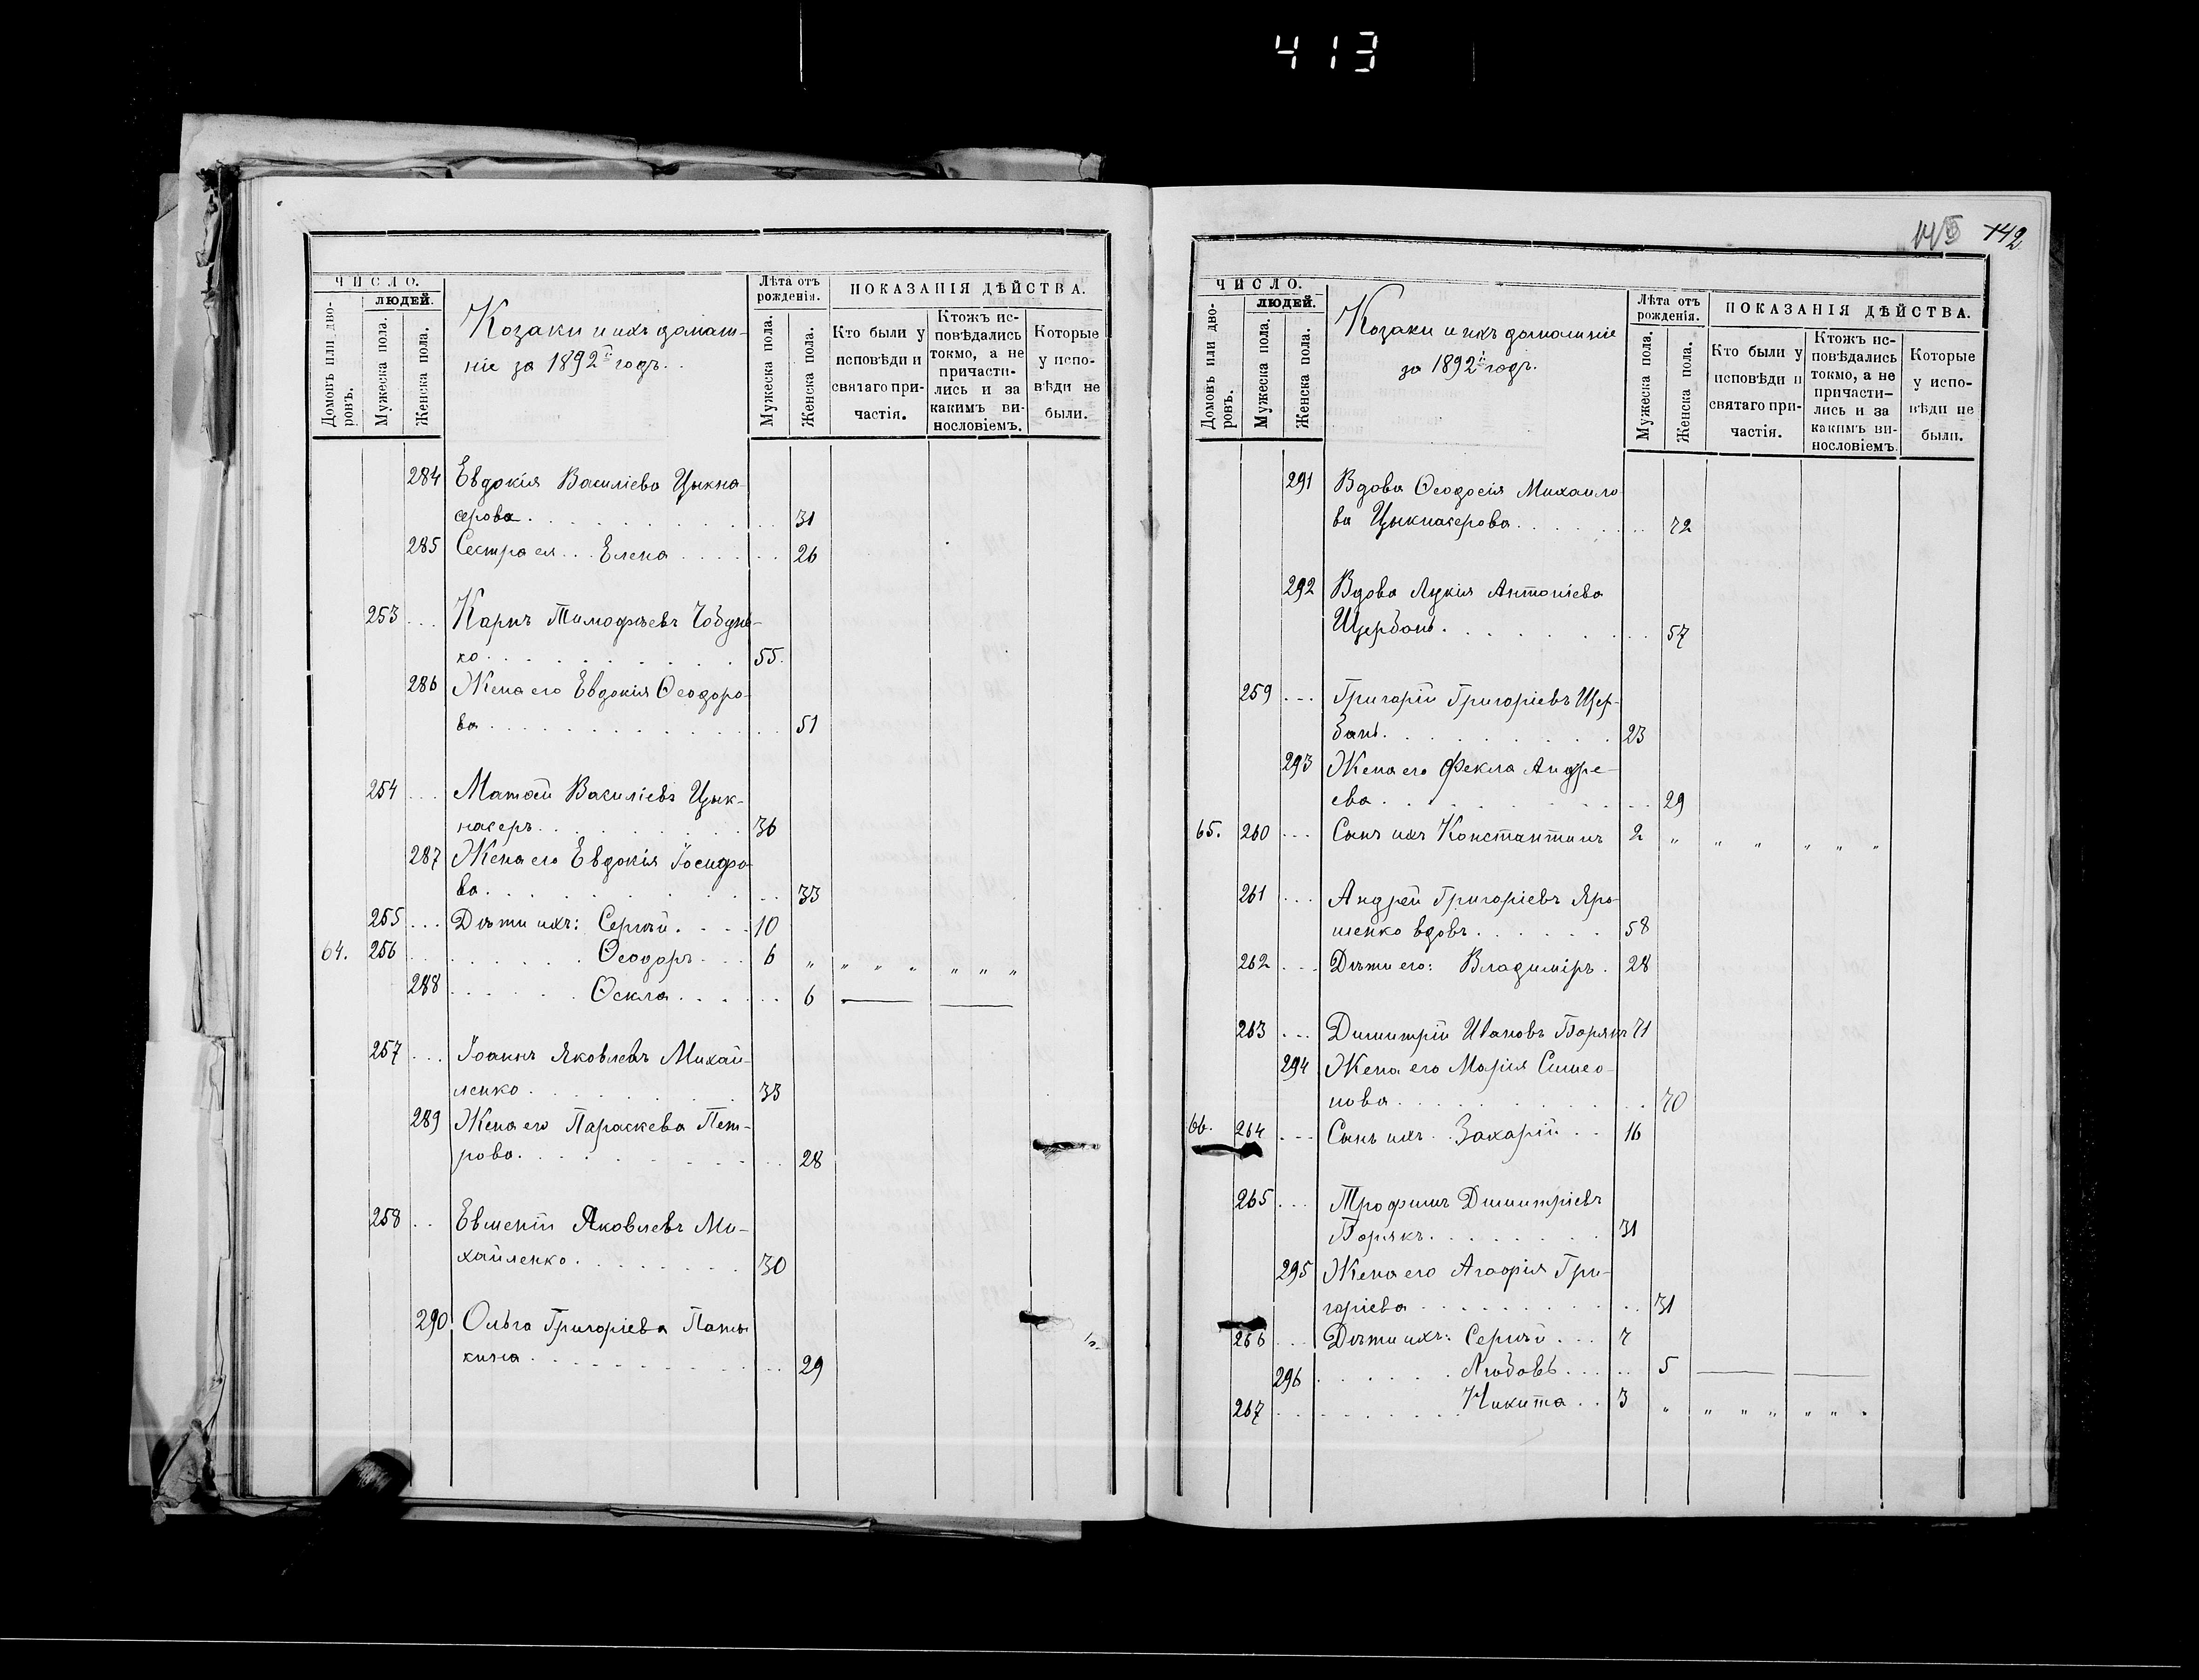 413
ЧИСЛО.
ЛЮДЕЙ.
Домовъ или дво-
ровъ.
Мужеска пола.
Женска пола.
Козаки и ихъ домаш-
ніе за 1892й годъ.
Лѣта отъ
рожденія.
Мужеска пола.
Женска пола.
ПОКАЗАНІЯ ДѢЙСТВА.
Кто были у
исповѣди и
святаго при-
частія.
Ктожъ ис-
повѣдались
токмо, а не
причасти-
лись и за
какимъ ви-
нословіемъ.
Которые
у испо-
вѣди не
были.
284 Евдокія Василіева Цыкна-
серова . . . 31
285 Сестра ея . . Елена . . . 26
253 . . . Карпъ Тимофѣевъ
ко . . . 55.
286 Жена его Евдокія Ѳеодоро-
ва . . . 51
254 . . . Матѳей Василіевъ Цык-
насеръ . . . 36
287 Жена его Евдокія Іосифо-
ва . . . 33
255 . . . Дѣти ихъ: Сергѣй . . . 10
64. 256 . . . Ѳеодоръ . . . 6 „ „ „ „ „ „ „
288 . . . Ѳекла . . . 6 — —
257 . . . Іоаннъ Яковлевъ Михай-
ленко . . . 33
289 Жена его Параскева Пет-
рова . . . 28
258 . . Евменій Яковлевъ Ми-
хайленко . . . 30
290 Ольга Григоріева
. . . 29
142
ЧИСЛО.
ЛЮДЕЙ.
Домовъ или дво-
ровъ.
Мужеска пола.
Женска пола.
Козаки и ихъ домашніе
за 1892й годъ.
Лѣта отъ
рожденія.
Мужеска пола.
Женска пола.
ПОКАЗАНІЯ ДѢЙСТВА.
Кто были у
исповѣди и
святаго при-
частія.
Ктожъ ис-
повѣдались
токмо, а не
причасти-
лись и за
какимъ ви-
нословіемъ.
Которые
у испо-
вѣди не
были.
291 Вдова Ѳеодосія Михаило-
ва Цыкнасерова . . . 72
292 Вдова Лукія Антоніева
Щербань . . . 57
259 . . . Григорій Григоріевъ Щер-
бань . . . 23
293 Жена его Фекла Андре-
ева . . . 29
65. 260 . . . Сынъ ихъ Константинъ 2 „ „ „ „ „ „
261 . . . Андрей Григоріевъ Яро-
шенко вдовъ . . . 58
262 . . . Дѣти его: Владиміръ . 28
263 . . . Димитрій Ивановъ Борякъ 71
294 Жена его Марія Симео-
нова . . . 70
66. 264 . . . Сынъ ихъ . . Захарій . . 16
265 . . . Трофимъ Димитріевъ
Борякъ . . . 31
295 Жена его Агафія Гри-
горіева . . . 31
266 . . . Дѣти ихъ: Сергѣй . . . 7
296 . . . Любовь . . . 5 — —
267 . . . Никита . . 3 „ „ „ „ „ „ „